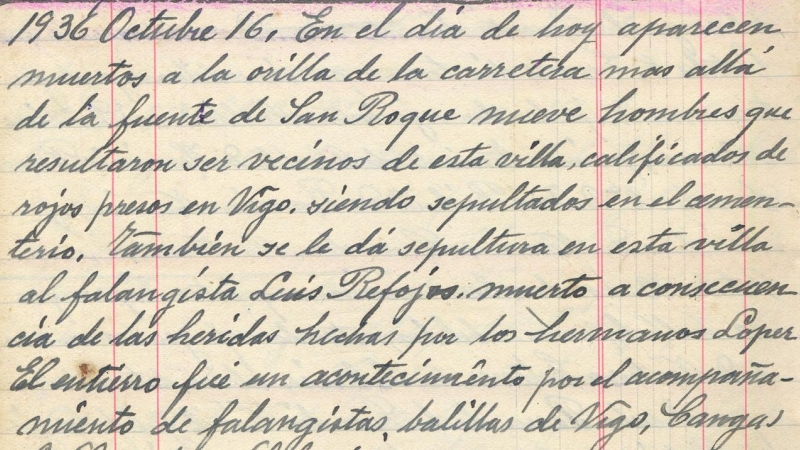 1936 Octubre 16. En el día de hoy aparecen
muertos a la orilla de la carretera mas allá
de la fuente de San Roque nueve hombres que
resultaron ser vecinos de esta villa, calificados de
rojos presos en Vigo. siendo sepultados en el cemen-
terio. También se le dá sepultura en esta villa
al falangista Luis Refojos. muerto a consecuen
cia de las heridas hechas por los hermanos Lóper
El entierro fué un acontecimiento por el acompaña-
miento de falangistas, balillas de Vigo, Cangas